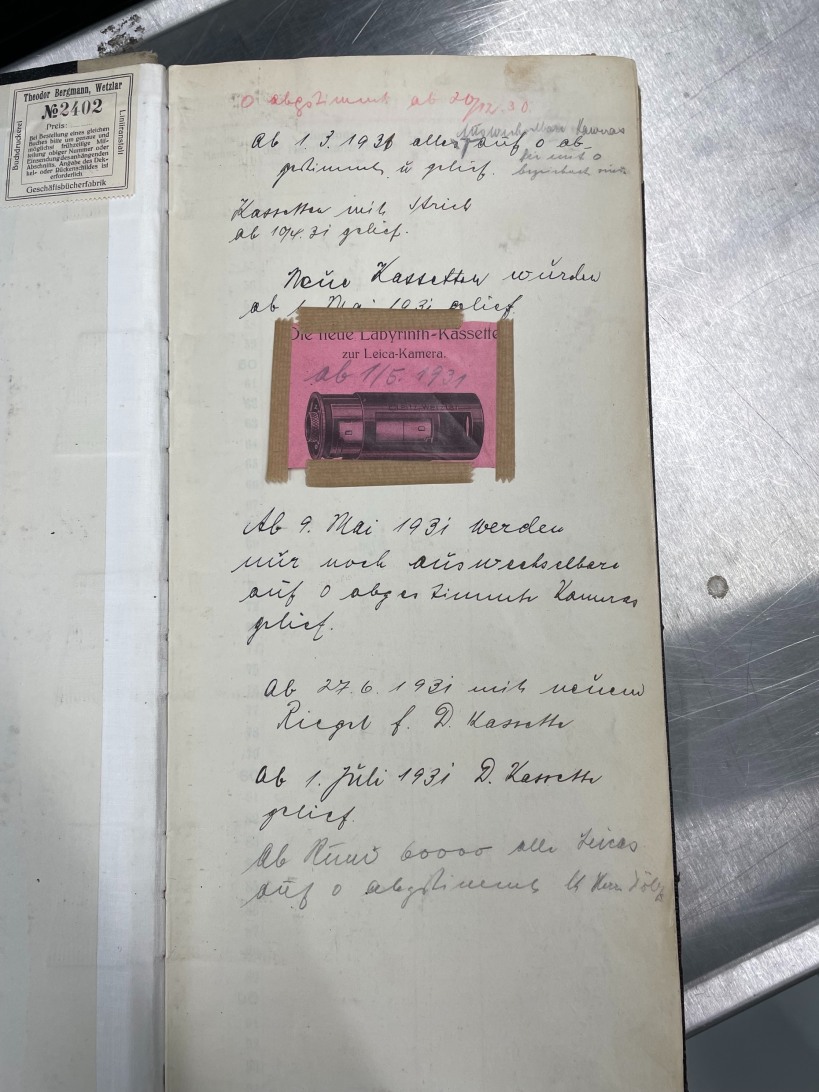 Theodor Bergmann, Wetzlar
№ 2402
Preis:
Bei Bestellung eines gleichen
Buches bitte um genaue und
möglichst frühzeitige Mit-
teilung obiger Nummer oder
Einsendung des anhängenden
Abschnitts. Angabe des Dek-
kel- oder Rückenschildes ist
erforderlich
Geschäftsbücherfabrik
Buchdruckerei
Liniieranstalt
0 abgestimmt ab 20/12.30
auswechselbare Kameras
Ab 1.3.1931 alle auf 0 ab-
gestimmt u gelief.
mit 0
Kassetten mit Strich
ab 10/4.31 gelief.
Neue Kassetten wurden
ab 1. Mai 1931 gelief.
Die neue Labyrinth-Kassette
zur Leica-Kamera.
ab 1/5. 1931
Ab 9. Mai 1931 werden
nur noch auswechselbare
auf 0 abgestimmte Kameras
gelief.
Ab 27.6.1931 mit neuem
Riegel f. D. Kassette
Ab 1. Juli 1931 D. Kassette
gelief.
Ab Num 60000 alle Leicas
auf 0 abgestimmt lt Herrn